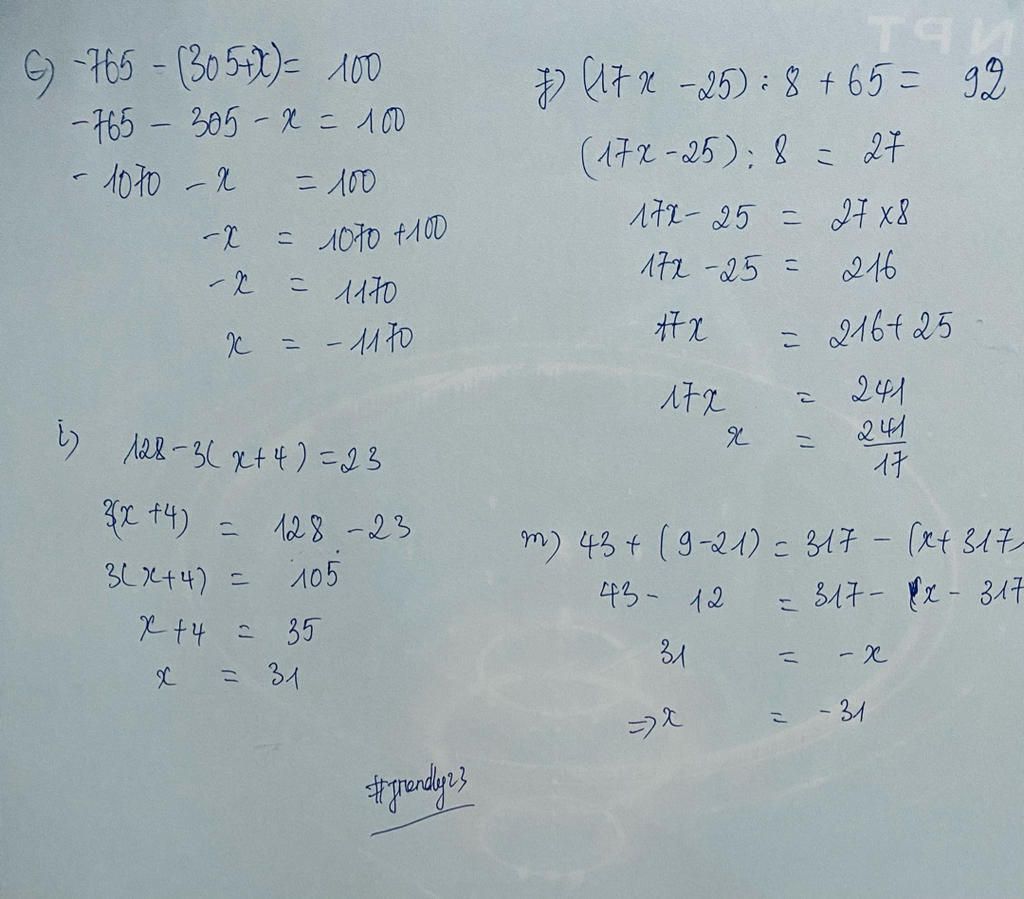 c) -765 - (305+x) = 100
-765 - 305 - x = 100
- 1070 - x = 100
-x = 1070 + 100
-x = 1170
x = -1170
i) 128 - 3(x+4) = 23
3(x+4) = 128 - 23
3(x+4) = 105
x+4 = 35
x = 31
f) (17x - 25) : 8 + 65 = 92
(17x - 25) : 8 = 27
17x - 25 = 27 x 8
17x - 25 = 216
17x = 216 + 25
17x = 241
x = 241/17
m) 43 + (9-21) = 317 - (x+317)
43 - 12 = 317 - x - 317
31 = -x
=> x = -31
NPT